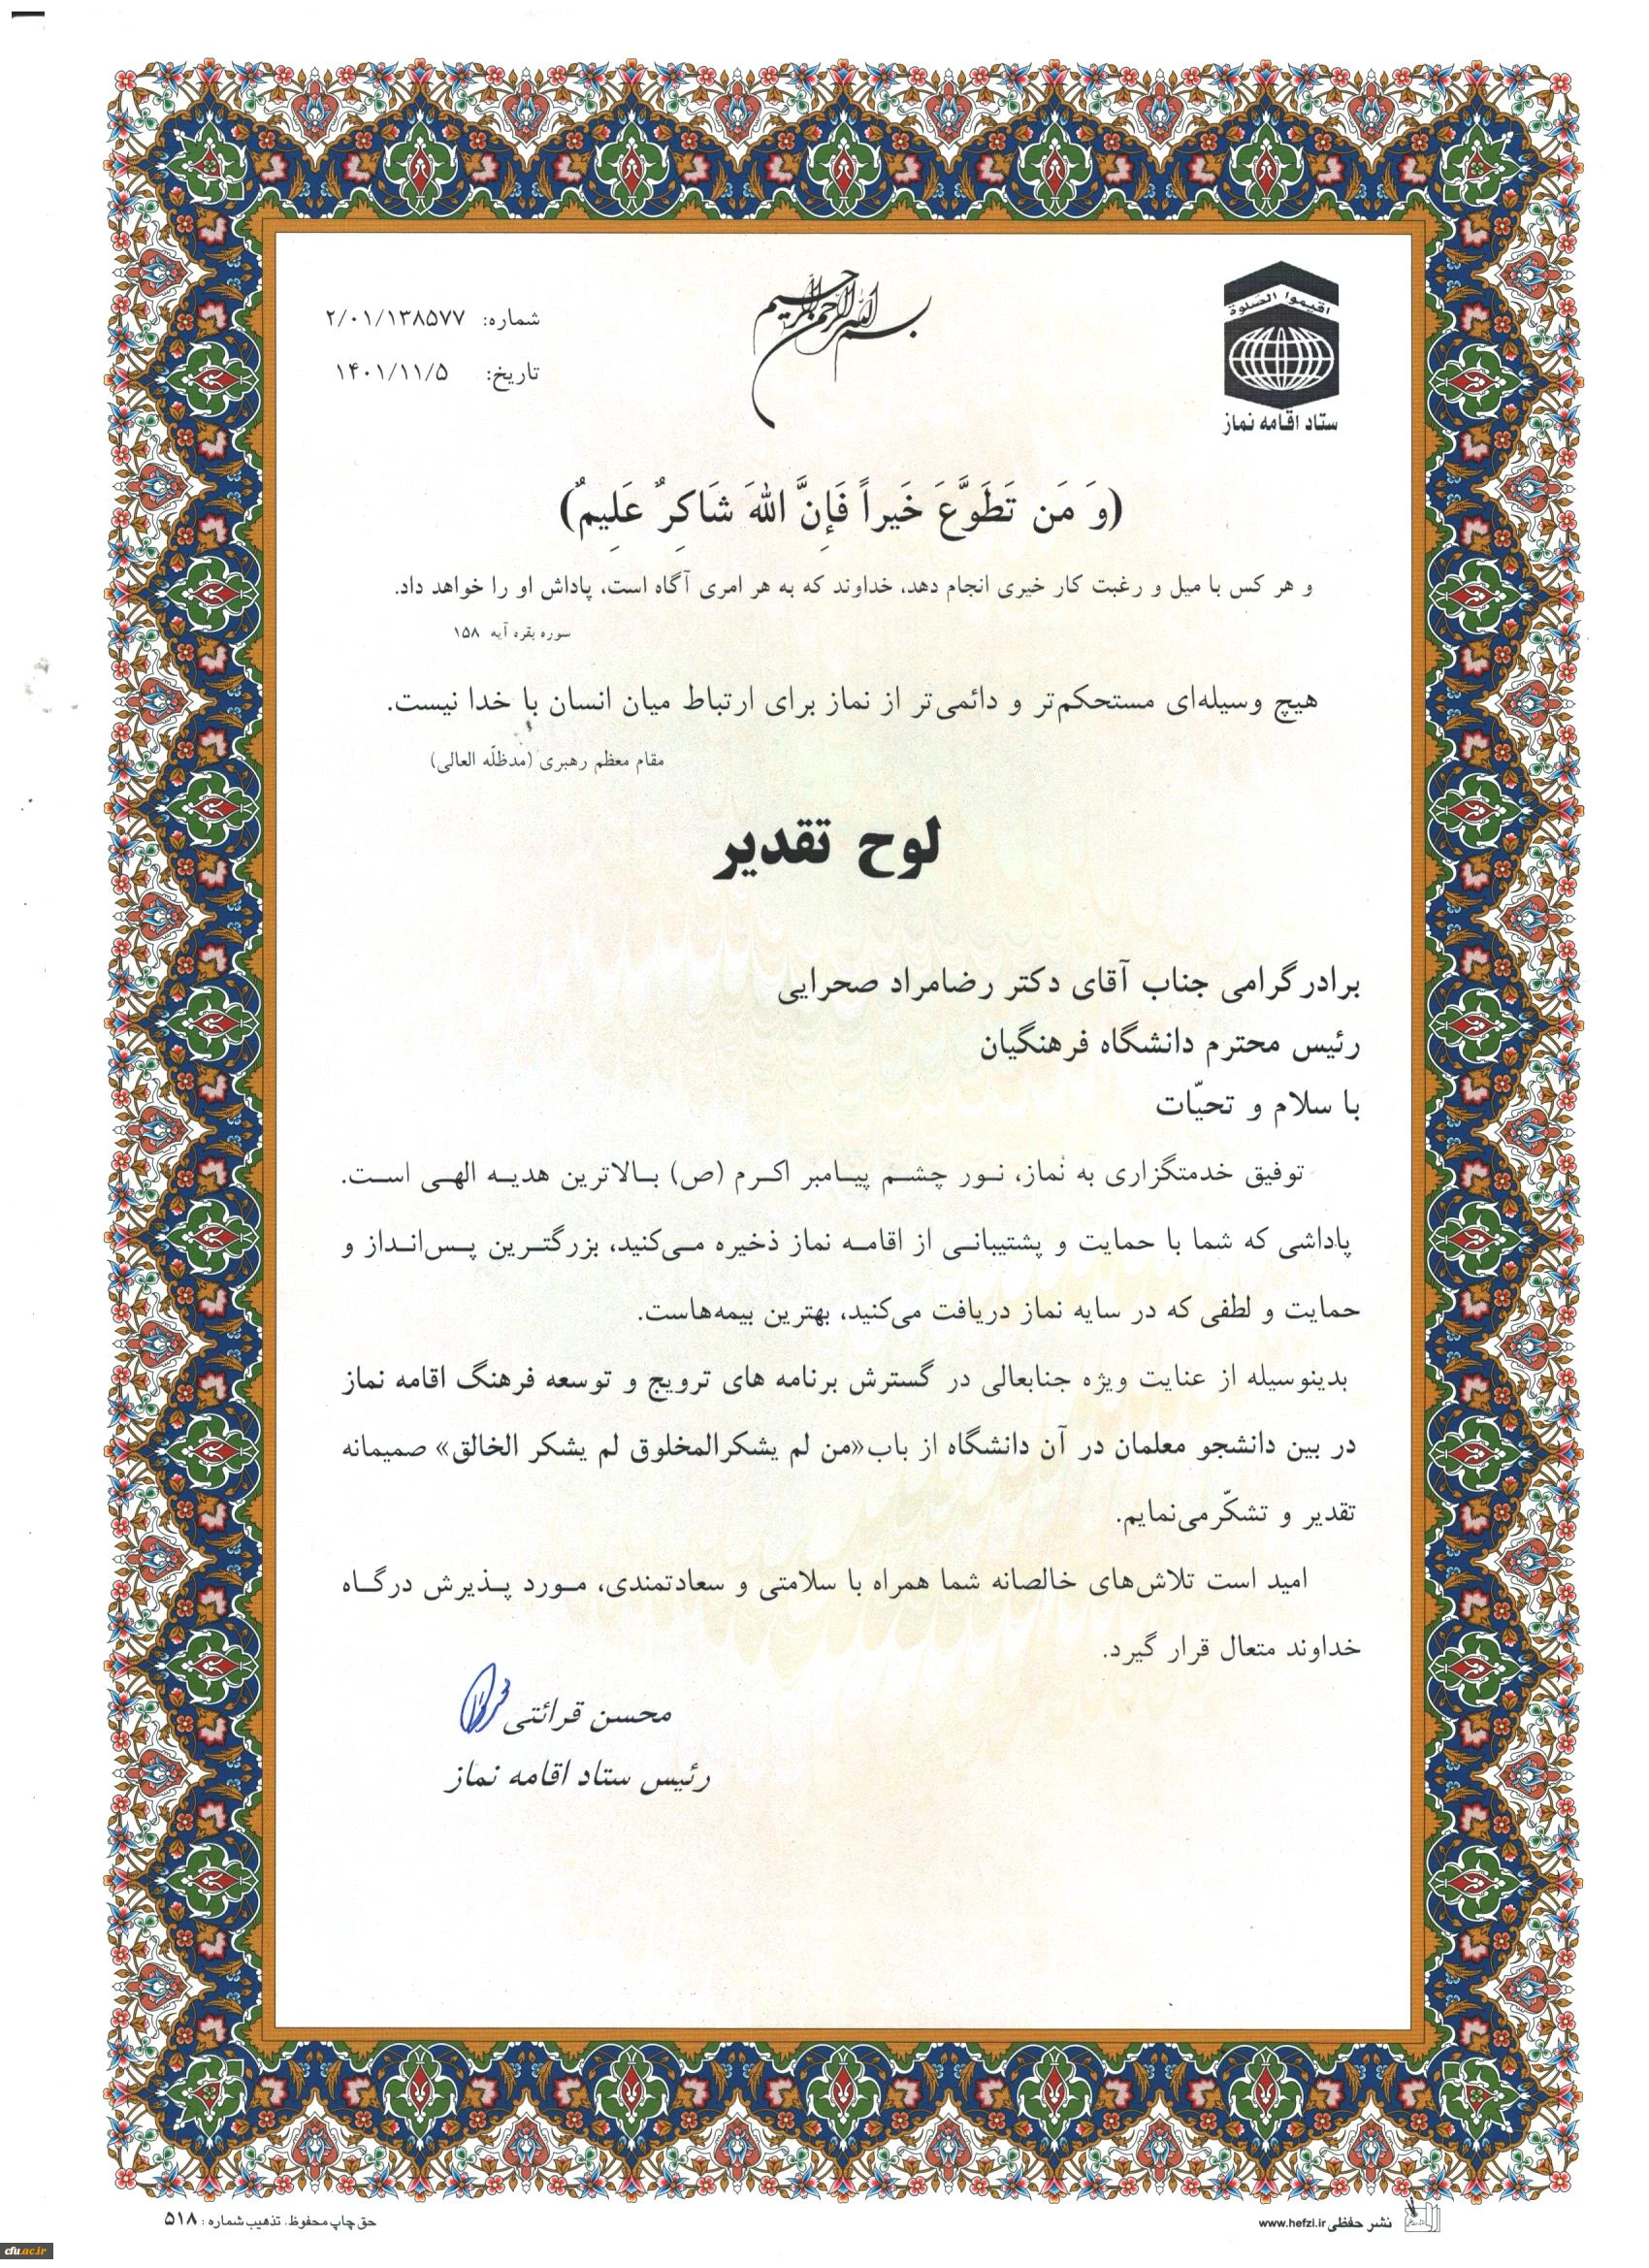 بسم الله الرحمن الرحیم
اقیموا الصلوة
ستاد اقامه نماز
شماره: ۲/۰۱/۱۳۸۵۷۷
تاریخ: ۱۴۰۱/۱۱/۵
(وَ مَن تَطَوَّعَ خَیراً فَإِنَّ اللهَ شَاکِرٌ عَلِیمٌ)
و هر کس با میل و رغبت کار خیری انجام دهد، خداوند که به هر امری آگاه است، پاداش او را خواهد داد.
سوره بقره آیه ۱۵۸
هیچ وسیله‌ای مستحکم‌تر و دائمی‌تر از نماز برای ارتباط میان انسان با خدا نیست.
مقام معظم رهبری (مدظلّه العالی)
لوح تقدیر
برادر گرامی جناب آقای دکتر رضامراد صحرایی
رئیس محترم دانشگاه فرهنگیان
با سلام و تحیّات
توفیق خدمتگزاری به نماز، نور چشم پیامبر اکرم (ص) بالاترین هدیه الهی است.
پاداشی که شما با حمایت و پشتیبانی از اقامه نماز ذخیره می‌کنید، بزرگترین پس‌انداز و
حمایت و لطفی که در سایه نماز دریافت می‌کنید، بهترین بیمه‌هاست.
بدینوسیله از عنایت ویژه جنابعالی در گسترش برنامه های ترویج و توسعه فرهنگ اقامه نماز
در بین دانشجو معلمان در آن دانشگاه از باب«من لم یشکرالمخلوق لم یشکر الخالق» صمیمانه
تقدیر و تشکّرمی‌نمایم.
امید است تلاش‌های خالصانه شما همراه با سلامتی و سعادتمندی، مورد پذیرش درگاه
خداوند متعال قرار گیرد.
محسن قرائتی
رئیس ستاد اقامه نماز
نشر حفظی www.hefzi.ir
حق چاپ محفوظ، تذهیب شماره : ۵۱۸
cfu.ac.ir